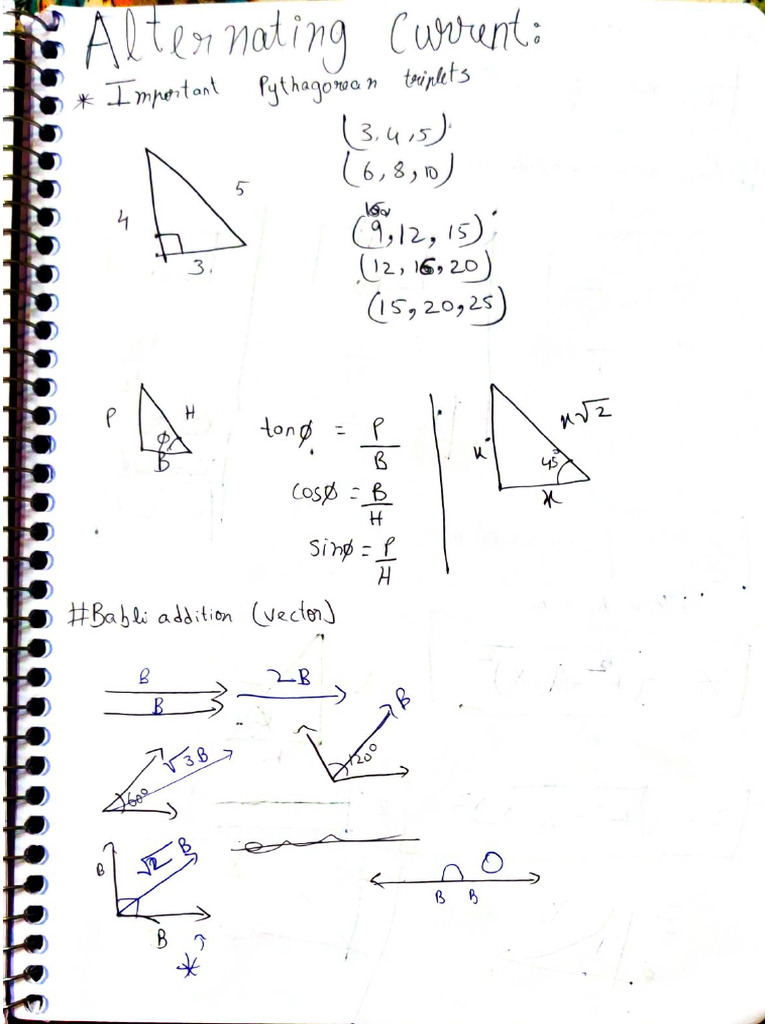 Alternating Current:
* Important Pythagorean triplets
(3.4,5)
(6,8,10)
(9,12,15)
(12,16,20)
(15,20,25)
4
5
3.
P
H
φ
B
tanφ = P/B
cosφ = B/H
sinφ = P/H
x
x√2
45°
x
#Babli addition (vector)
B
B
2B
√3B
60°
B
120°
B
√2 B
B
*
0
B B